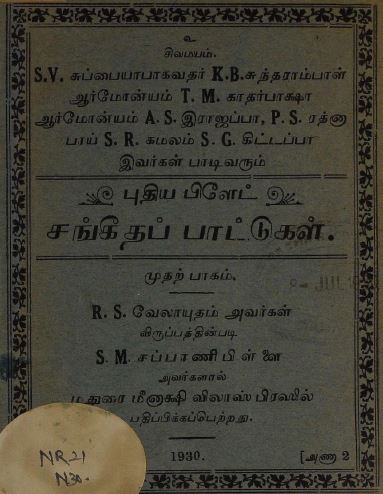 உ
சிவமயம்.
S.V. சுப்பையாபாகவதர் K.B.சுந்தராம்பாள்
ஆர்மோன்யம் T. M. காதர்பாக்ஷா
ஆர்மோன்யம் A. S. இராஜப்பா, P. S. ரத்னா
பாய் S. R. கமலம் S. G. கிட்டப்பா
இவர்கள் பாடிவரும்
புதிய பிளேட்
சங்கீதப் பாட்டுகள்.
முதற் பாகம்.
R. S. வேலாயுதம் அவர்கள்
விருப்பத்தின்படி
S. M. சப்பாணிபிள்ளை
அவர்களால்
மதுரை மீனாக்ஷி விலாஸ் பிரஸில்
பதிப்பிக்கப்பெற்றது.
1930. [அணா 2
NR21
N30.